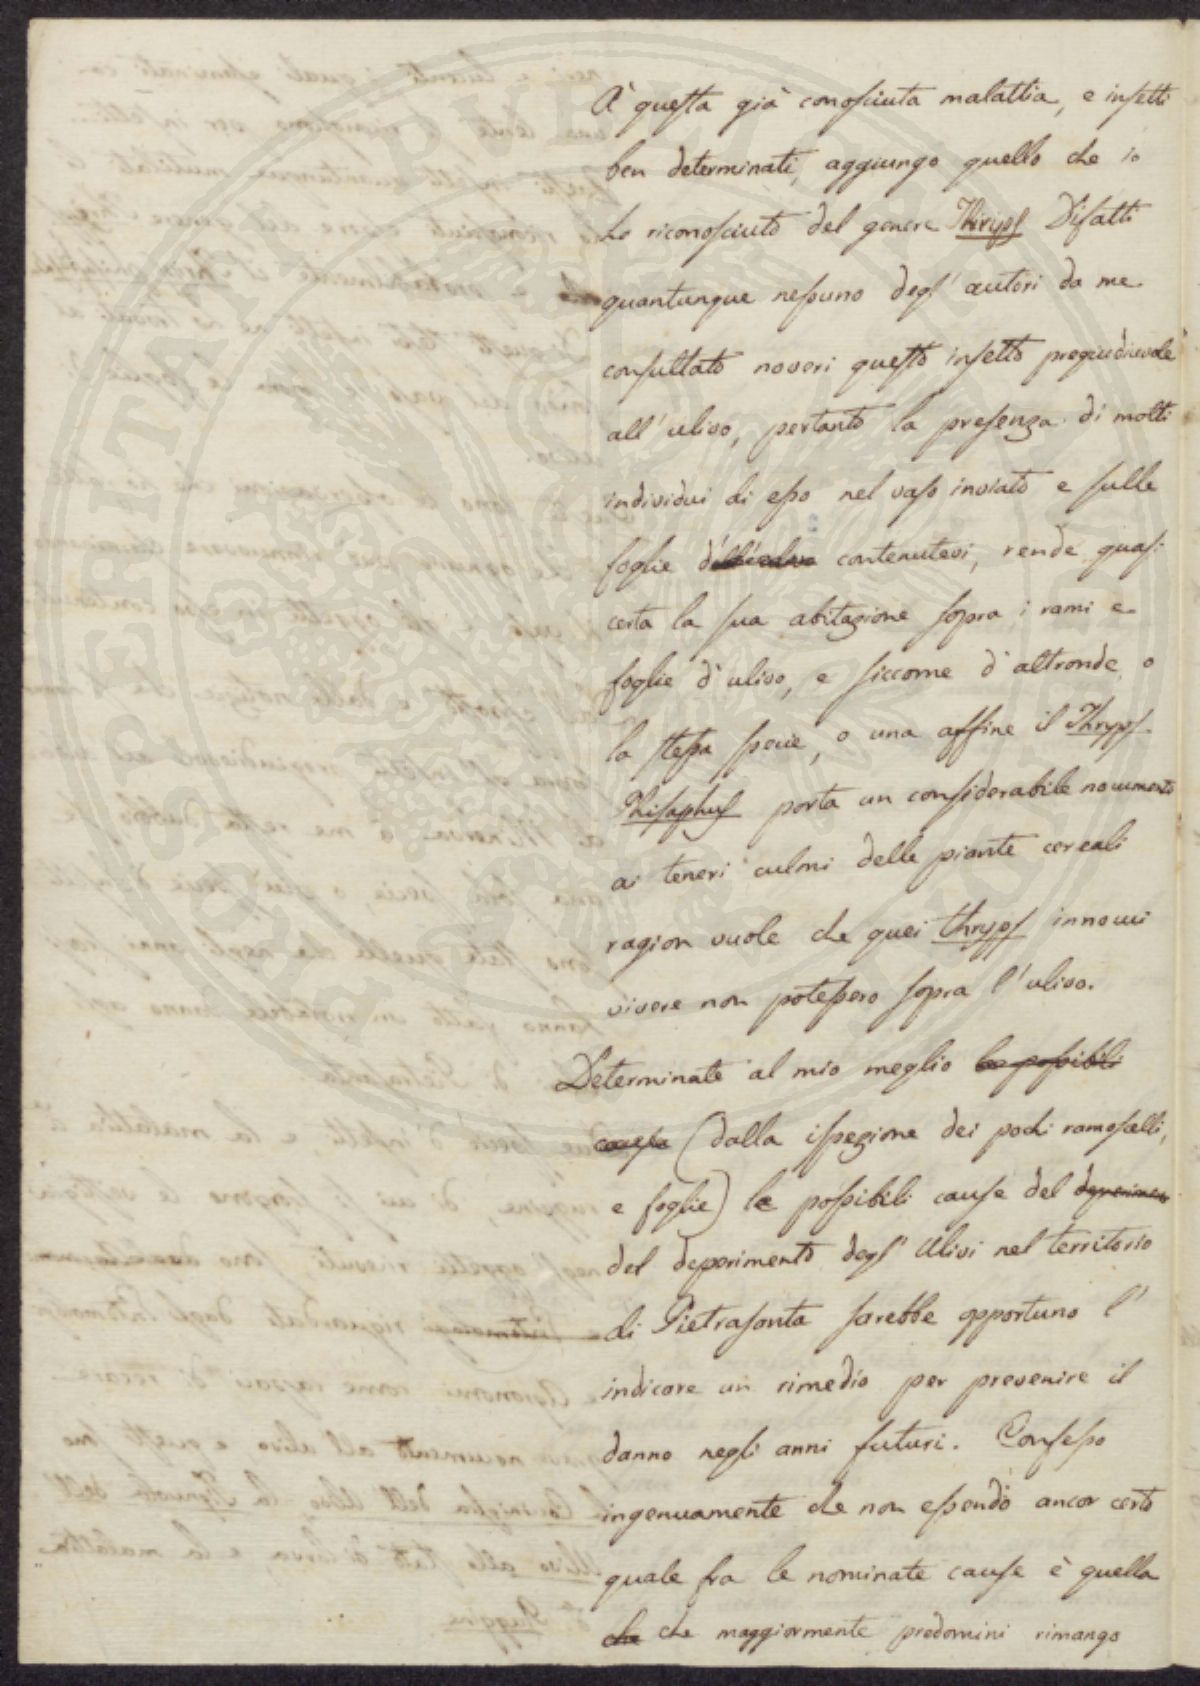 A' questa già conosciuta malattia, e insetti
ben determinati, aggiungo quello che io
ho riconosciuto del genere Thryps Difatti
quantunque nessuno degl' autori da me
consultato noveri questo insetto pregiudicevole
all'ulivo, pertanto la presenza di molti
individui di esso nel vaso inviato e sulle
foglie contenutevi, rende quasi
certa la sua abitazione sopra i rami e
foglie d'ulivo, e siccome d'altronde o
la stessa specie, o una affine il Thryps
Phisaphus porta un considerabile nocumento
ai teneri culmi delle piante cereali
ragion vuole che quei thryps innocui
vivere non potessero sopra l'ulivo.
Determinate al mio meglio le possibili
cause (dalla ispezione dei pochi ramoscelli,
e foglie) le possibili cause del deperimento
del deperimento degl' Ulivi nel territorio
di Pietrasanta sarebbe opportuno l'
indicare un rimedio per prevenire il
danno negli anni futuri. Confesso
ingenuamente che non essendo ancor certo
quale fra le nominate cause è quella
che che maggiormente predomini rimango